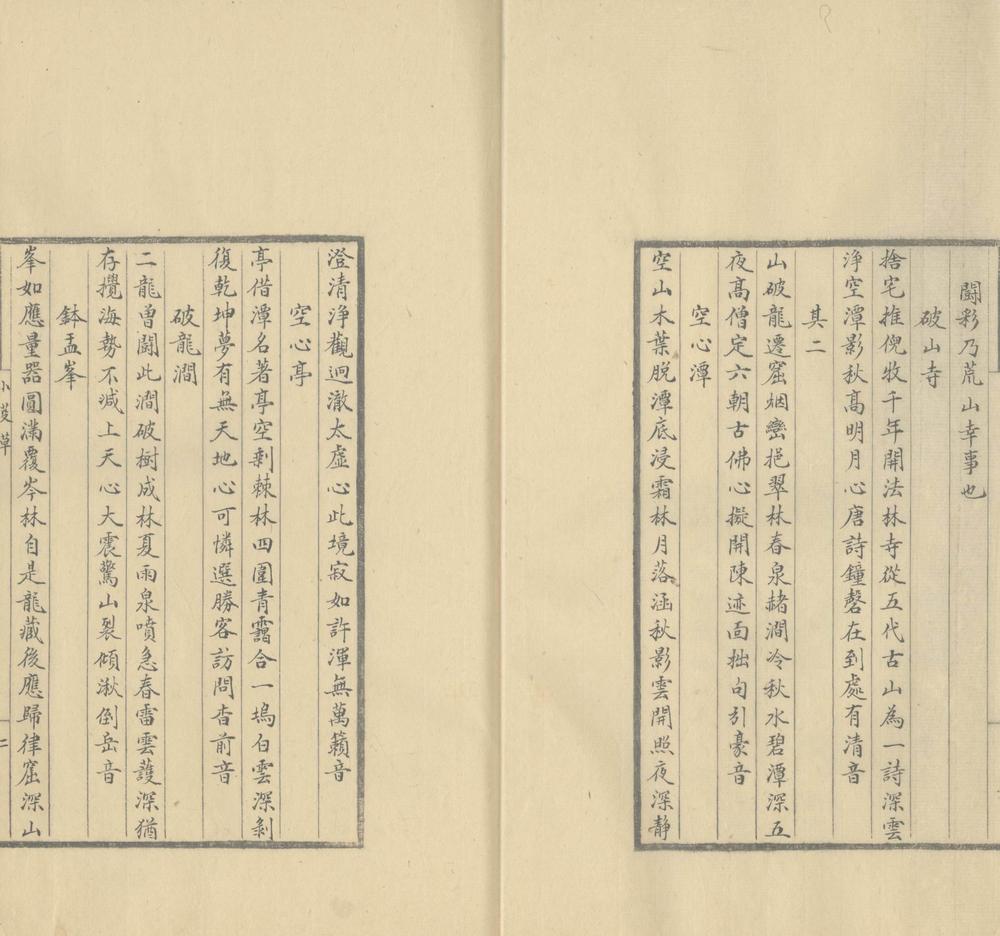 闘彩乃荒山幸事也
破山寺
捨宅推倪牧千年開法林寺從五代古山為一詩深雲
淨空潭影秋高明月心唐詩鐘磬在到處有清音
其二
山破龍遷窟烟巒挹翠林春泉赭澗冷秋水碧潭深五
夜高僧定六朝古佛心擬開陳迹面拙句引豪音
空心潭
空山木葉脱潭底浸霜林月落涵秋影雲開照夜深靜
澄清淨觀迥澈太虛心此境寂如許渾無萬籟音
空心亭
亭借潭名著亭空剩棘林四圍青靄合一塢白雲深剝
復乾坤夢有無天地心可憐選勝客訪問杳前音
破龍澗
二龍曽闘此澗破樹成林夏雨泉噴急春雷雲護深猶
存攪海勢不減上天心大震驚山裂傾湫倒岳音
鉢盂峯
峯如應量器圓滿覆岑林自是龍藏後應歸律窟深山
小䓈草
二